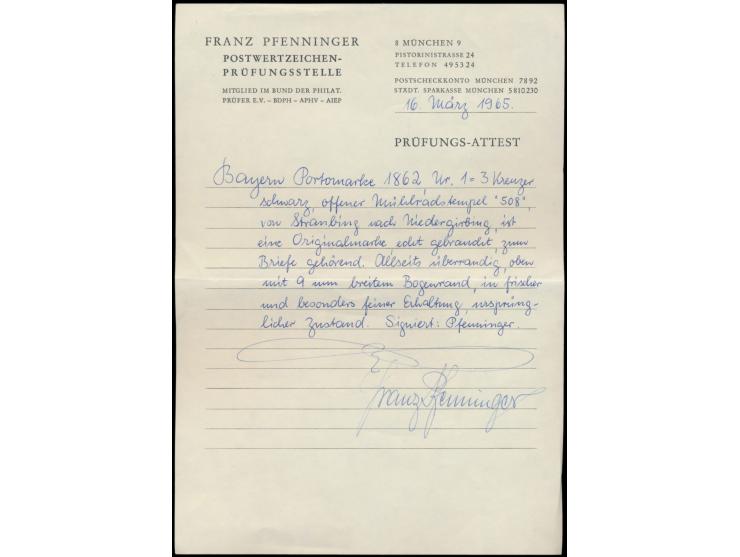 FRANZ PFENNINGER
POSTWERTZEICHEN-
PRÜFUNGSSTELLE
MITGLIED IM BUND DER PHILAT.
PRÜFER E.V. – BDPH – APHV – AIEP
8 MÜNCHEN 9
PISTORINISTRASSE 24
TELEFON 495324
POSTSCHECKKONTO MÜNCHEN 7892
STÄDT. SPARKASSE MÜNCHEN 5810230
16. März 1965.
PRÜFUNGS-ATTEST
Bayern Portomarke 1862, Nr. 1 = 3 Kreuzer
schwarz, offener Mühlradstempel "508",
von Straubing nach Niedergirbing, ist
eine Originalmarke, echt gebraucht, zum
Briefe gehörend. Allseits überrandig, oben
mit 9 mm breitem Bogenrand, in frischer
und besonders feiner Erhaltung, ursprüng-
licher Zustand. Signiert: Pfenninger.
Franz Pfenninger